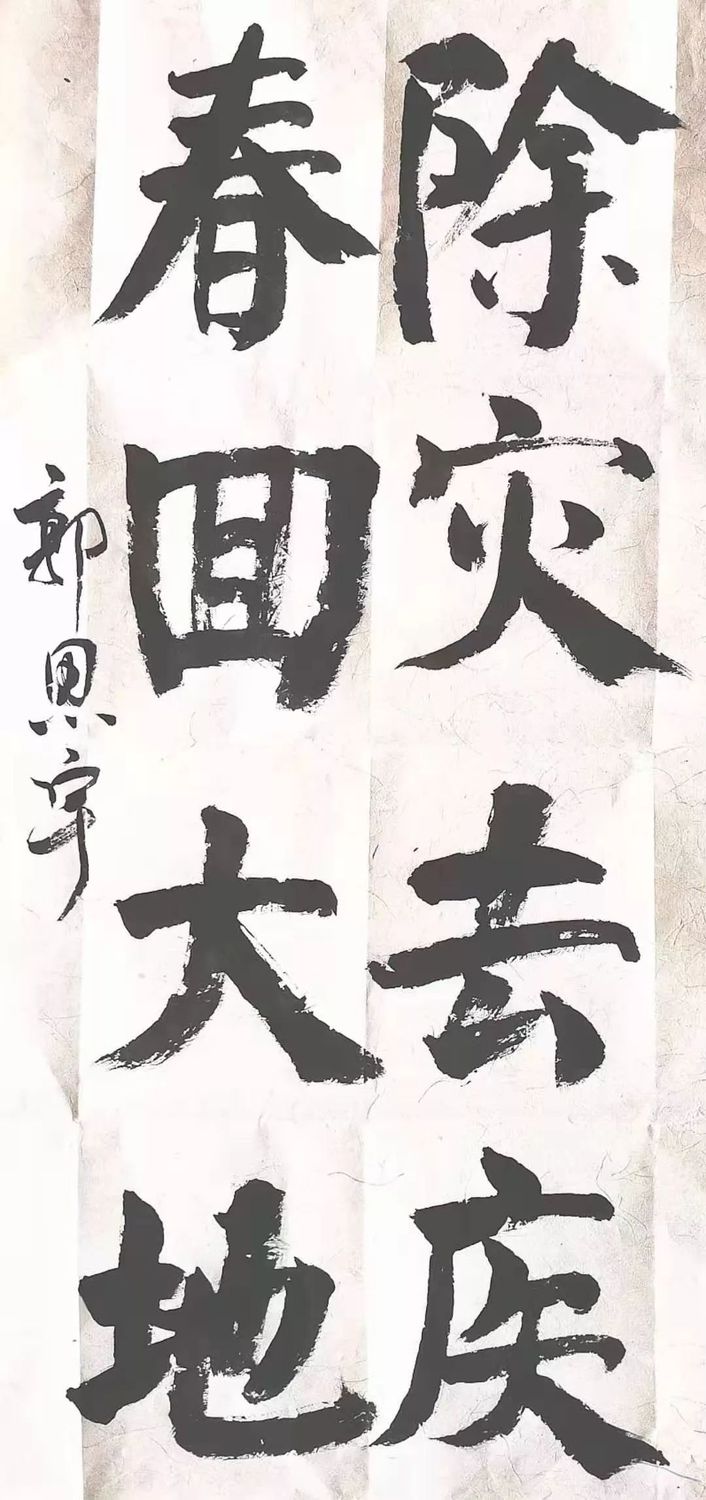 除灾去疾
春回大地
郭恩宇